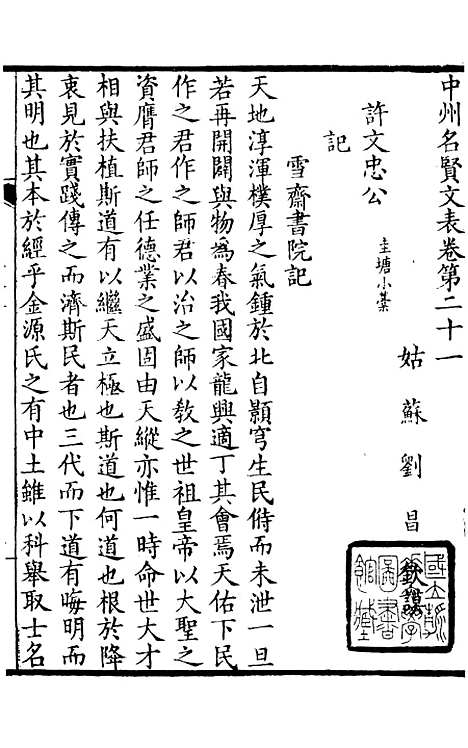 中州名賢文表卷第二十一
姑蘇劉昌
許文忠公 圭塘小藁
記
雪齋書院記
天地淳渾樸厚之氣鍾於北自顥穹生民偫而未泄一旦
若再開闢與物為春我國家龍興適丁其會焉天佑下民
作之君作之師君以治之師以敎之世祖皇帝以大聖之
資膺君師之任德業之盛固由天縱亦惟一時命世大才
相與扶植斯道有以繼天立極也斯道也何道也根於降
衷見於實踐傳之而濟斯民者也三代而下道有晦明而
其明也其本於經乎金源氏之有中土雖以科舉取士名